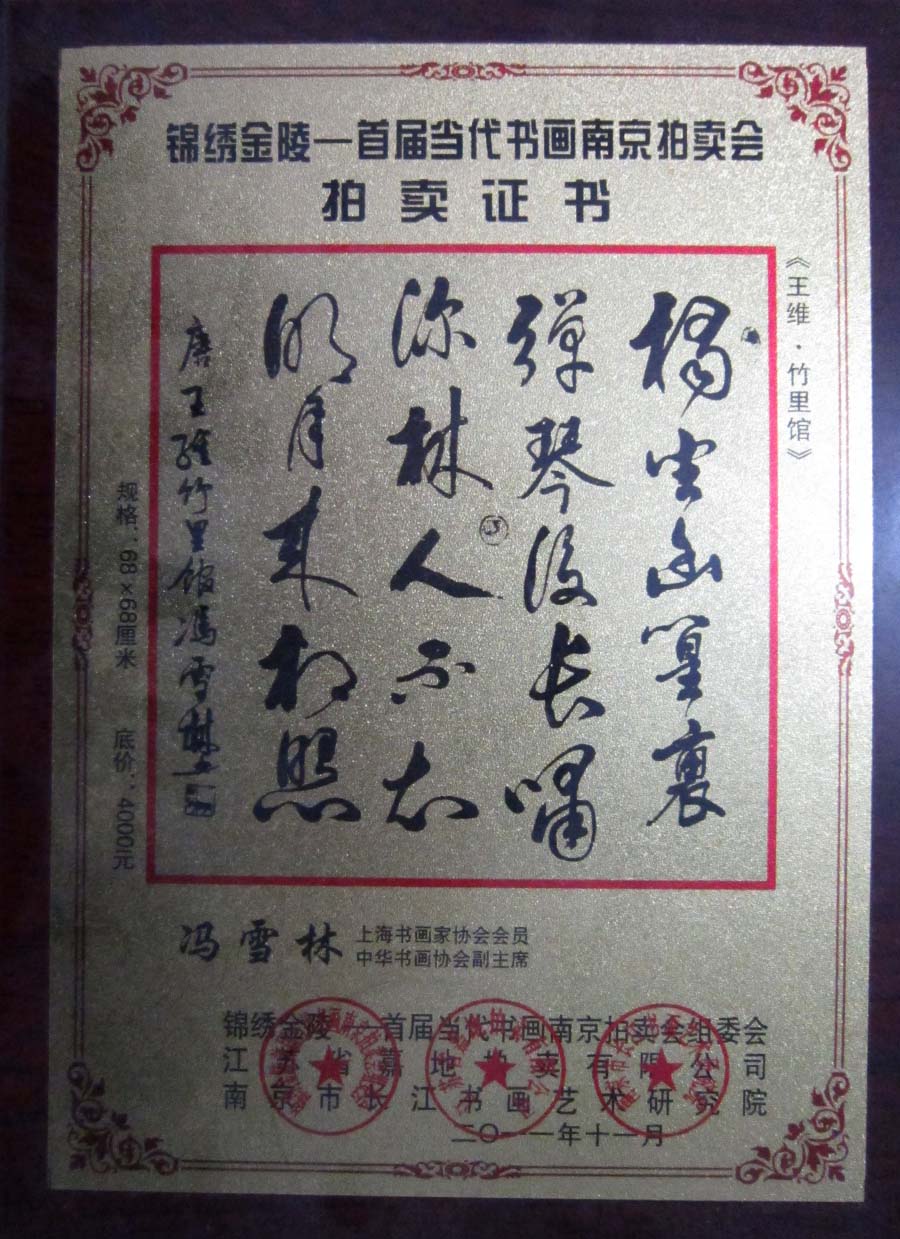 锦绣金陵—首届当代书画南京拍卖会
拍卖证书
《王维·竹里馆》
獨坐幽篁裏
彈琴復長嘯
深林人不知
明月来相照
唐王維竹里館馮雪林
规格：68×68厘米 底价：4000元
冯雪林
上海书画家协会会员
中华书画协会副主席
锦绣金陵—首届当代书画南京拍卖会组委会
江苏省嘉地拍卖有限公司
南京市长江书画艺术研究院
二〇一一年十一月